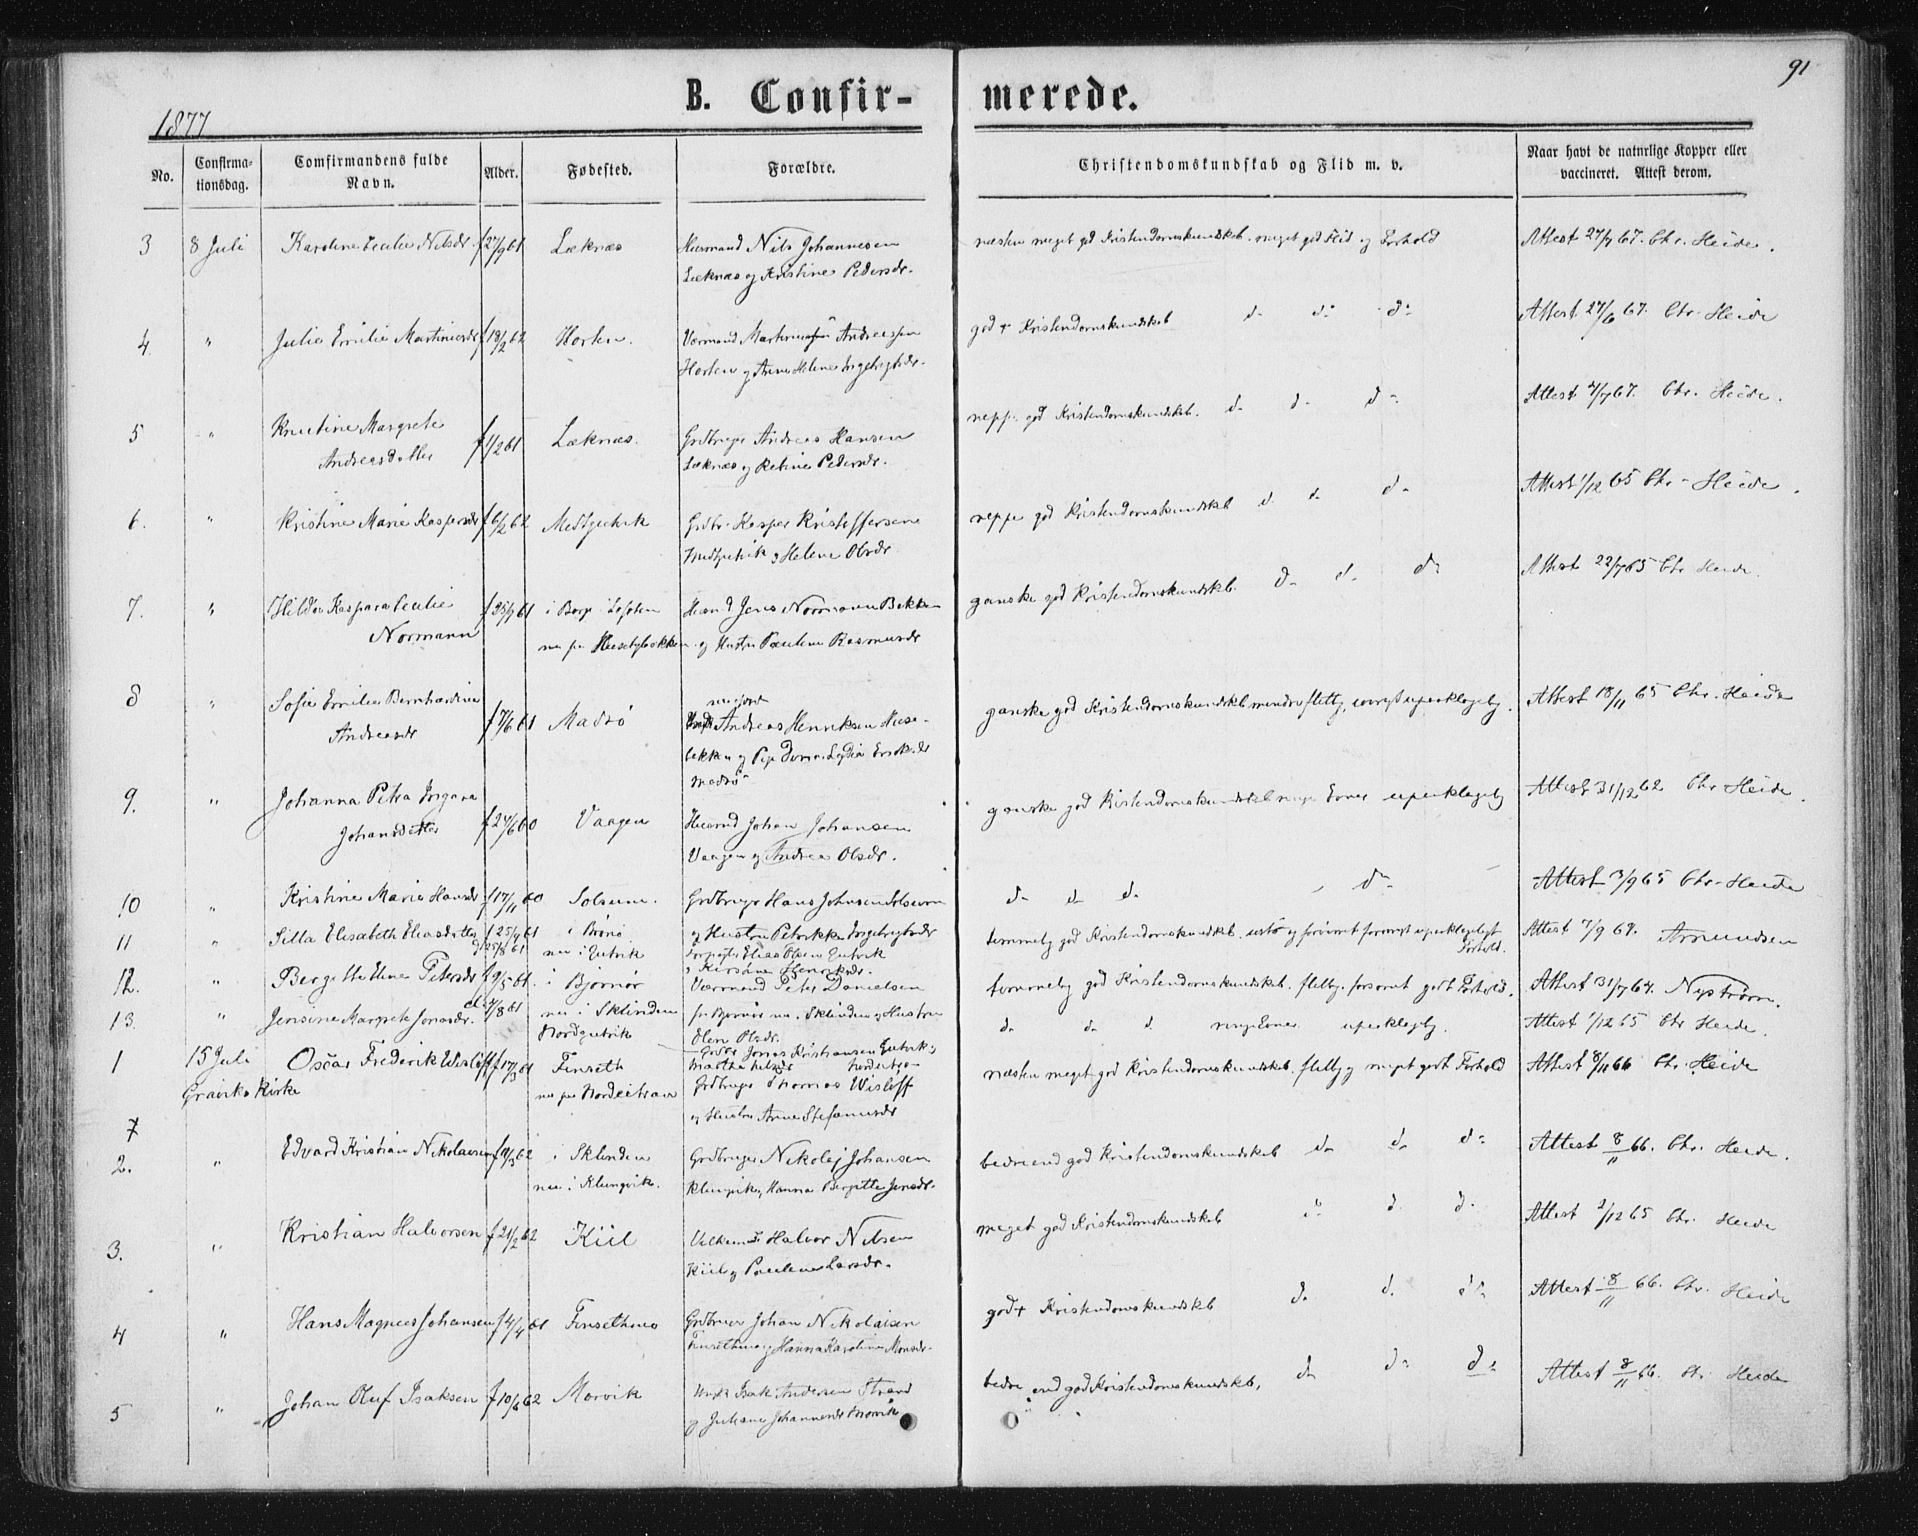 91
1877
B. Confir- merede.
No.
Confirma-
tionsdag.
Comfirmandens fulde
Navn.
Alder.
Fødested.
Forældre.
Christendomskundskab og Flid m. v.
Naar havt de naturlige Kopper eller
vaccineret. Attest derom.
3 8 Juli Karoline Cecilie Nilsdr. f 27/9 61 Leknæs Huusmand Nils Johannesen næsten meget god Kristendomskundskab. meget god Flid og Forhold Attest 27/7 67. Chr. Heide.
Leknæs og Kristine Pedersdr.
4. " Julie Emilie Martinusdr f 18/2 62 Horten. Andreassen god + Kristendomskundskab d- d- d- Attest 27/6 67. Chr. Heide
Horten og Anne Helene Ingebrigtsdr.
5 " Knutine Margrete f 1/2 61 Leknæs. Grdbruger Andreas Hansen neppe god Kristendomskundskb. d- d- d- Attest 4/7 67. Chr. Heide.
Andreasdatter Leknæs og Petrine Pedersdr.
6. " Kristine Marie Kaspersdr f 6/2 62 Grdbr. Kasper Kristoffersen neppe god Kristendomskundskb d d- d- Attest 1/12 65 Chr. Heide.
og Helene Olsdr
7. " Hilda Kaspara Cecilie f 25/7 61 i Borge i Lofoten Jens Normann Bekken ganske god Kristendomskundskb. d- d- d- Attest 22/7 65 Chr Heide.
Normann nu paa Husebybakken og Hustru Pauline Rasmusdr
8 " Sofie Emilie Bernhardine f 7/6 61 Madsø Andreas Henriksen Huse- ganske god Kristendomskundskb mindre flittig, uperklagelig. Attest 18/11 65 Chr. Heide
Andreasdr bekken og Pige
Madsø
9. " Johanna Petra Ingara f 24/6 60 Vaagen Huusmd Johan Johansen ganske god Kristendomskundskab ringe Evner upaaklagelig Attest 31/12 62 Chr Heide.
Johansdatter Vaagen og Andrea Olsdr.
10 " Kristine Marie Hansdr f 17/11 60 Solsem. Grdbruger Hans Johnsen Solsem d- d- d- d- Attest 3/9 65 Chr. Heide
og Hustru Ingebrigtsdr
11 " Silla Elisabeth Eliasdatter f 25/4 61 i Brønø Elias Olsen temmelig god Kristendomskundskb. Forhold. Attest 7/9 67. Amundsen
d 25/8 61 nu i Gutvik
12. " Bergitte Eline Petersdr f 9/5 61. i Bjørnør Værmand Peter Danielsen temmelig god Kristendomskundskab. flittig. forsømt godt Forhold. Attest 31/7 64. Nystrøm.
Elen Olsdr.
13. " Jensine Margrete Jonasdr. 4/8 61 nu i Sklinden d- d- d- ringe Evner upaaklagelig. Attest 1/12 65 Chr Heide.
Nordgutvik Grdbr Jonas Kristiansen Gutvik
1 15 Juli Oscar Frederik Wisløff f 17/3 61 Finseth Grdbruger Thomas Wisløff næsten meget god Kristendomskundskab. flittig og meget godt Forhold Attest 8/11 66 Chr. Heide
Graviks Kirke og Hustru Anne Stefanusdr
2. " Edvard Kristian Nikolaisen i Sklinden Grdbruger Nikolaj Johansen bedre end god Kristendomskundskab d- d- d- Attest 8/11 66. Chr. Heide.
nu i Klungvik. Klungvik og Hanna Bergitte Jensdr.
3. " Kristian Halvorsen f 21/2 62 Kiil Halvor Nilsen meget god Kristendomskundskab d- d- d- Attest 2/12 65 Chr. Heide
Kiil og Pauline Larsdr.
4 " Hans Magnus Johansen f 4/4 61 Finsethmo Grdbruger Johan Nikolaisen god + Kristendomskundskb d. d. d- Attest 8/11 66. Chr. Heide
Finsethmo og Hanna Karoline Monsdr.
5 " Johan Oluf Isaksen f 10/6 62 Morvik Isak Andersen Strand bedre end god Kristendomskundskb, d- d- d- Attest 8/11 66. Chr. Heide
og Juliane Johannesdr Morvik